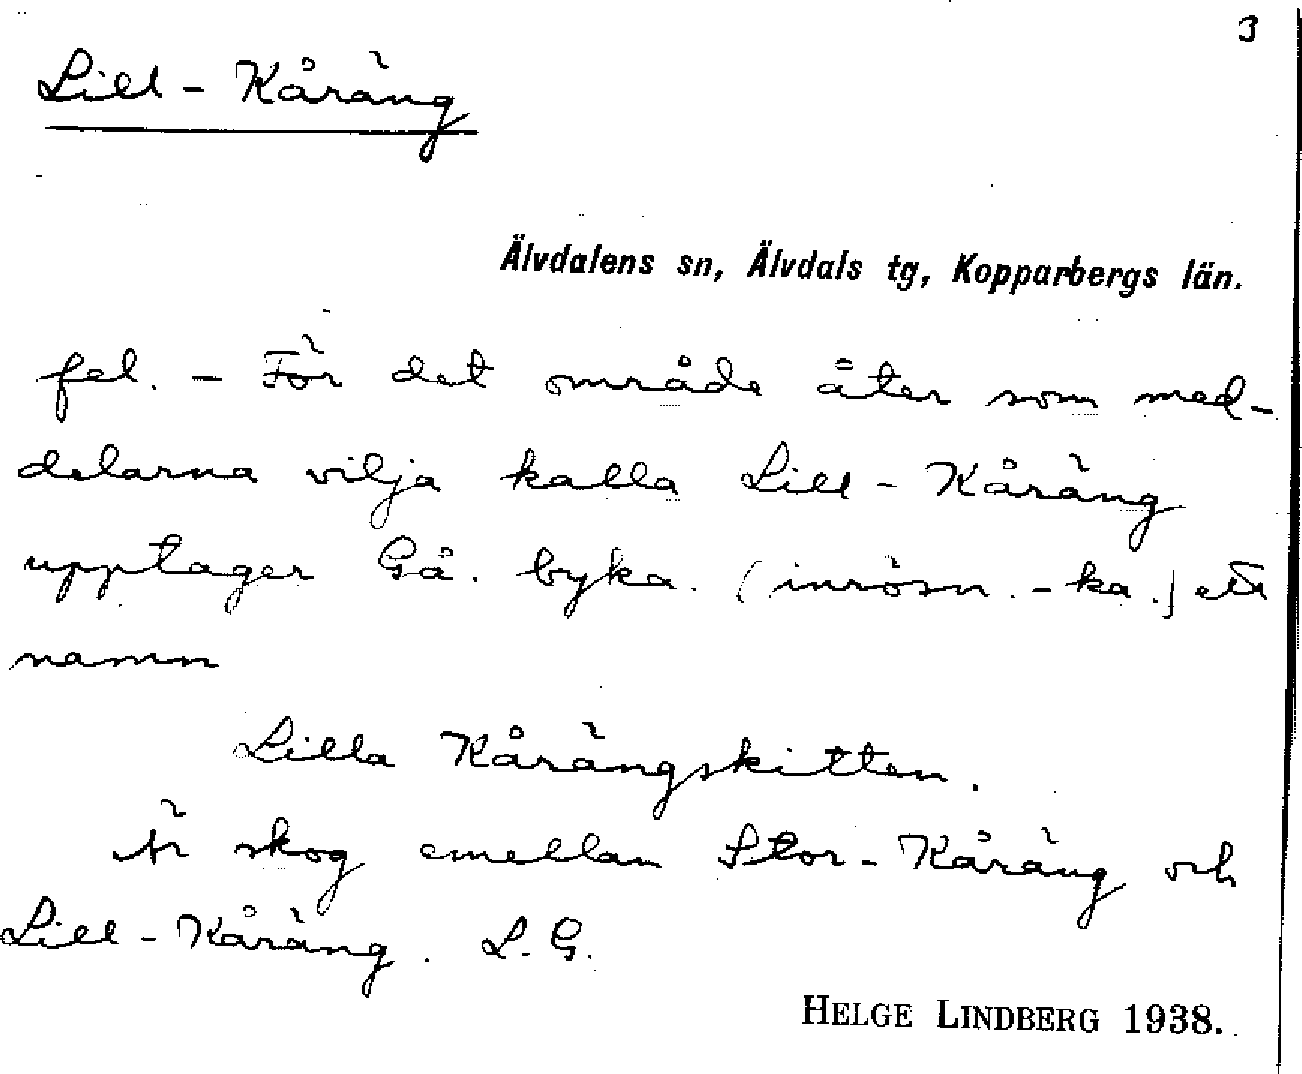 3
Lill - Kåräng
Älvdalens sn, Älvdals tg, Kopparbergs län.
fel. - För det område åter som med-
delarna vilja kalla Lill - Kåräng
upptager Gå. byka. (inrösn. - ka.) ett
namn
Lilla Kårängskitten.
Är skog emellan Stor - Kåräng och
Lill - Kåräng. L. G.
HELGE LINDBERG 1938.